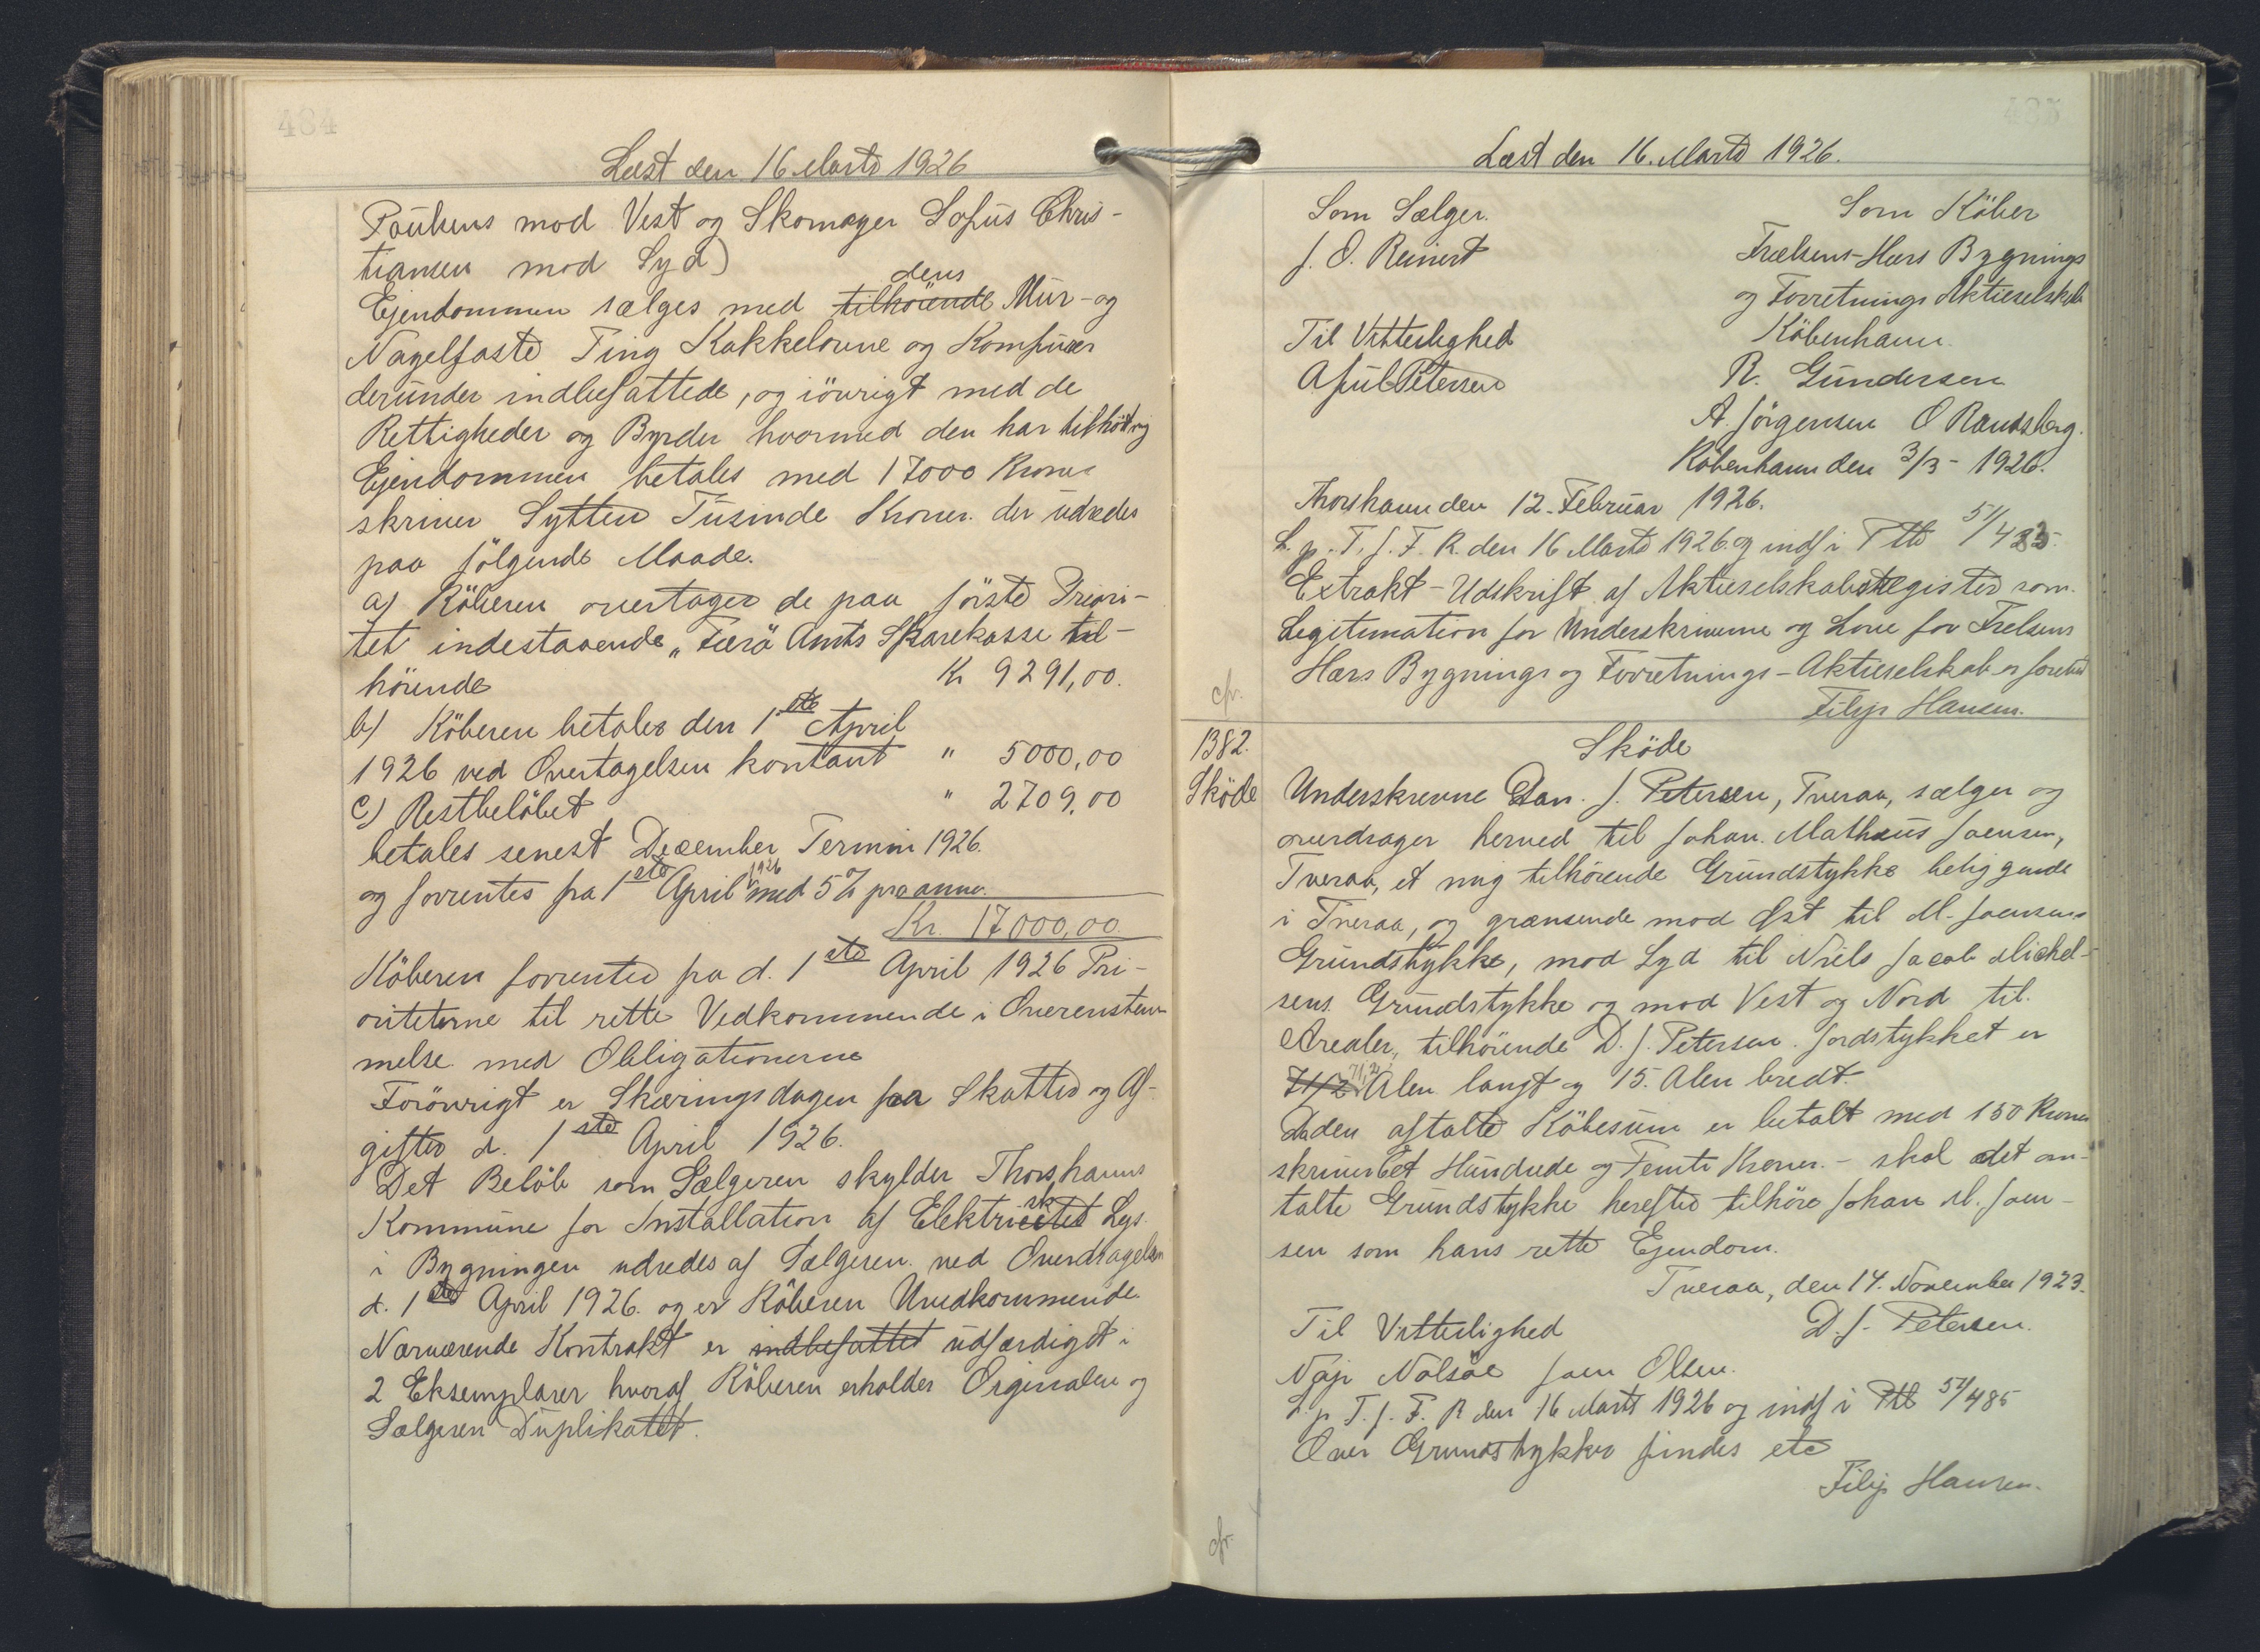 484
Læst den 16 Marts 1926
Poulsens mod Vest og Skomager Sofus Chris-
tiansen mod Syd)
Ejendommen sælges med tilhörende dens Mur- og
Nagelfaste Ting Kakkelovne og Komfurer
derunder indbefattede, og iövrigt med de
Rettigheder og Byrder hvormed den har tilhört mig
Ejendommen betales med 17000 Kroner
skriver Sytten Tusinde Kroner. der udredes
paa fölgende Maade.
a) Köberen overtager de paa förste Priori-
tet indestaaende, Færö Amts Sparekasse til-
hörende Kr 9291,00.
b) Köberen betaler den 1ste April
1926 ved Overtagelsen kontant " 5000,00
c) Restbelöbet " 2709,00
betales senest December Termin 1926.
og forrentes fra 1ste April 1926 med 5 % pro anno.
Kr. 17000,00.
Köberen forrenter fra d. 1ste April 1926 Pri-
oriteterne til rette Vedkommende i Overenstem-
melse med Obligationerne
Forövrigt er Skæringsdagen for Skatter og Af-
gifter d. 1ste April 1926.
Det Belöb som Sælgeren skylder Thorshavns
Kommune for Installation af Elektricitet sk Lys
i Bygningen udredes af Sælgeren ved Overdragelsen
d. 1ste April 1926. og er Köberen Uvedkommende.
Nærværende Kontrakt er indbefattet udfærdiget i
2 Eksemplarer hvoraf Köberen erholder Orginalen og
Sælgeren Duplikatet.
485
Læst den 16. Marts 1926.
Som Sælger. Som Köber
J. O. Reinert Frælsens-Hærs Bygnings
og Forretnings Aktieselskab
Til Vitterlighed Köbenhavn.
A Juul Petersen R. Gundersen
A. Jörgensen O Randsborg.
Köbenhavn den 3/3 - 1926.
Thorshavn den 12. Februar 1926.
L. p. T. f. F. R. den 16 Marts 1926. og indf i Ttb 51/483
Extrakt-Udskrift af Aktieselskabsregistret som
Legitimation for Underskriverne og Love for Frelsens
Hærs Bygnings og Forretnings-Aktieselskab er forevist
cfr. Filip Hansen.
1382. Sköde
Sköde Underskrevne Dan. J. Petersen, Tveraa, sælger og
overdrager herved til Johan. Mathæus Joensen,
Tveraa, et mig tilhörende Grundstykke beliggende
i Tveraa, og grænsende mod Øst til M. Joensens
Grundstykke, mod Syd til Niels Jacob Michel-
sens Grundstykke og mod Vest og Nord til
Arealer, tilhörende D. J. Petersen. Jordstykket er
71/2 71,2 Alen langt og 15. Alen bredt.
Da den aftalte Köbesum er betalt med 150 Kroner
skriver Et Hundrede og Femti Kroner. - skal det om-
talte Grundstykke herefter tilhöre Johan M. Joen-
sen som hans rette Ejendom.
Tveraa, den 14. November 1923.
Til Vitterlighed D. J. Petersen.
Nolsöe Joen Olsen.
L. p T. f. F. R den 16 Marts 1926 og indf i Ptb 51/485
Over Grundstykket findes etc
Filip Hansen.
cfr.